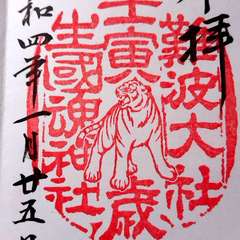 拝
難波大社
壬寅歳
生國魂神社
和四年一月廿五日